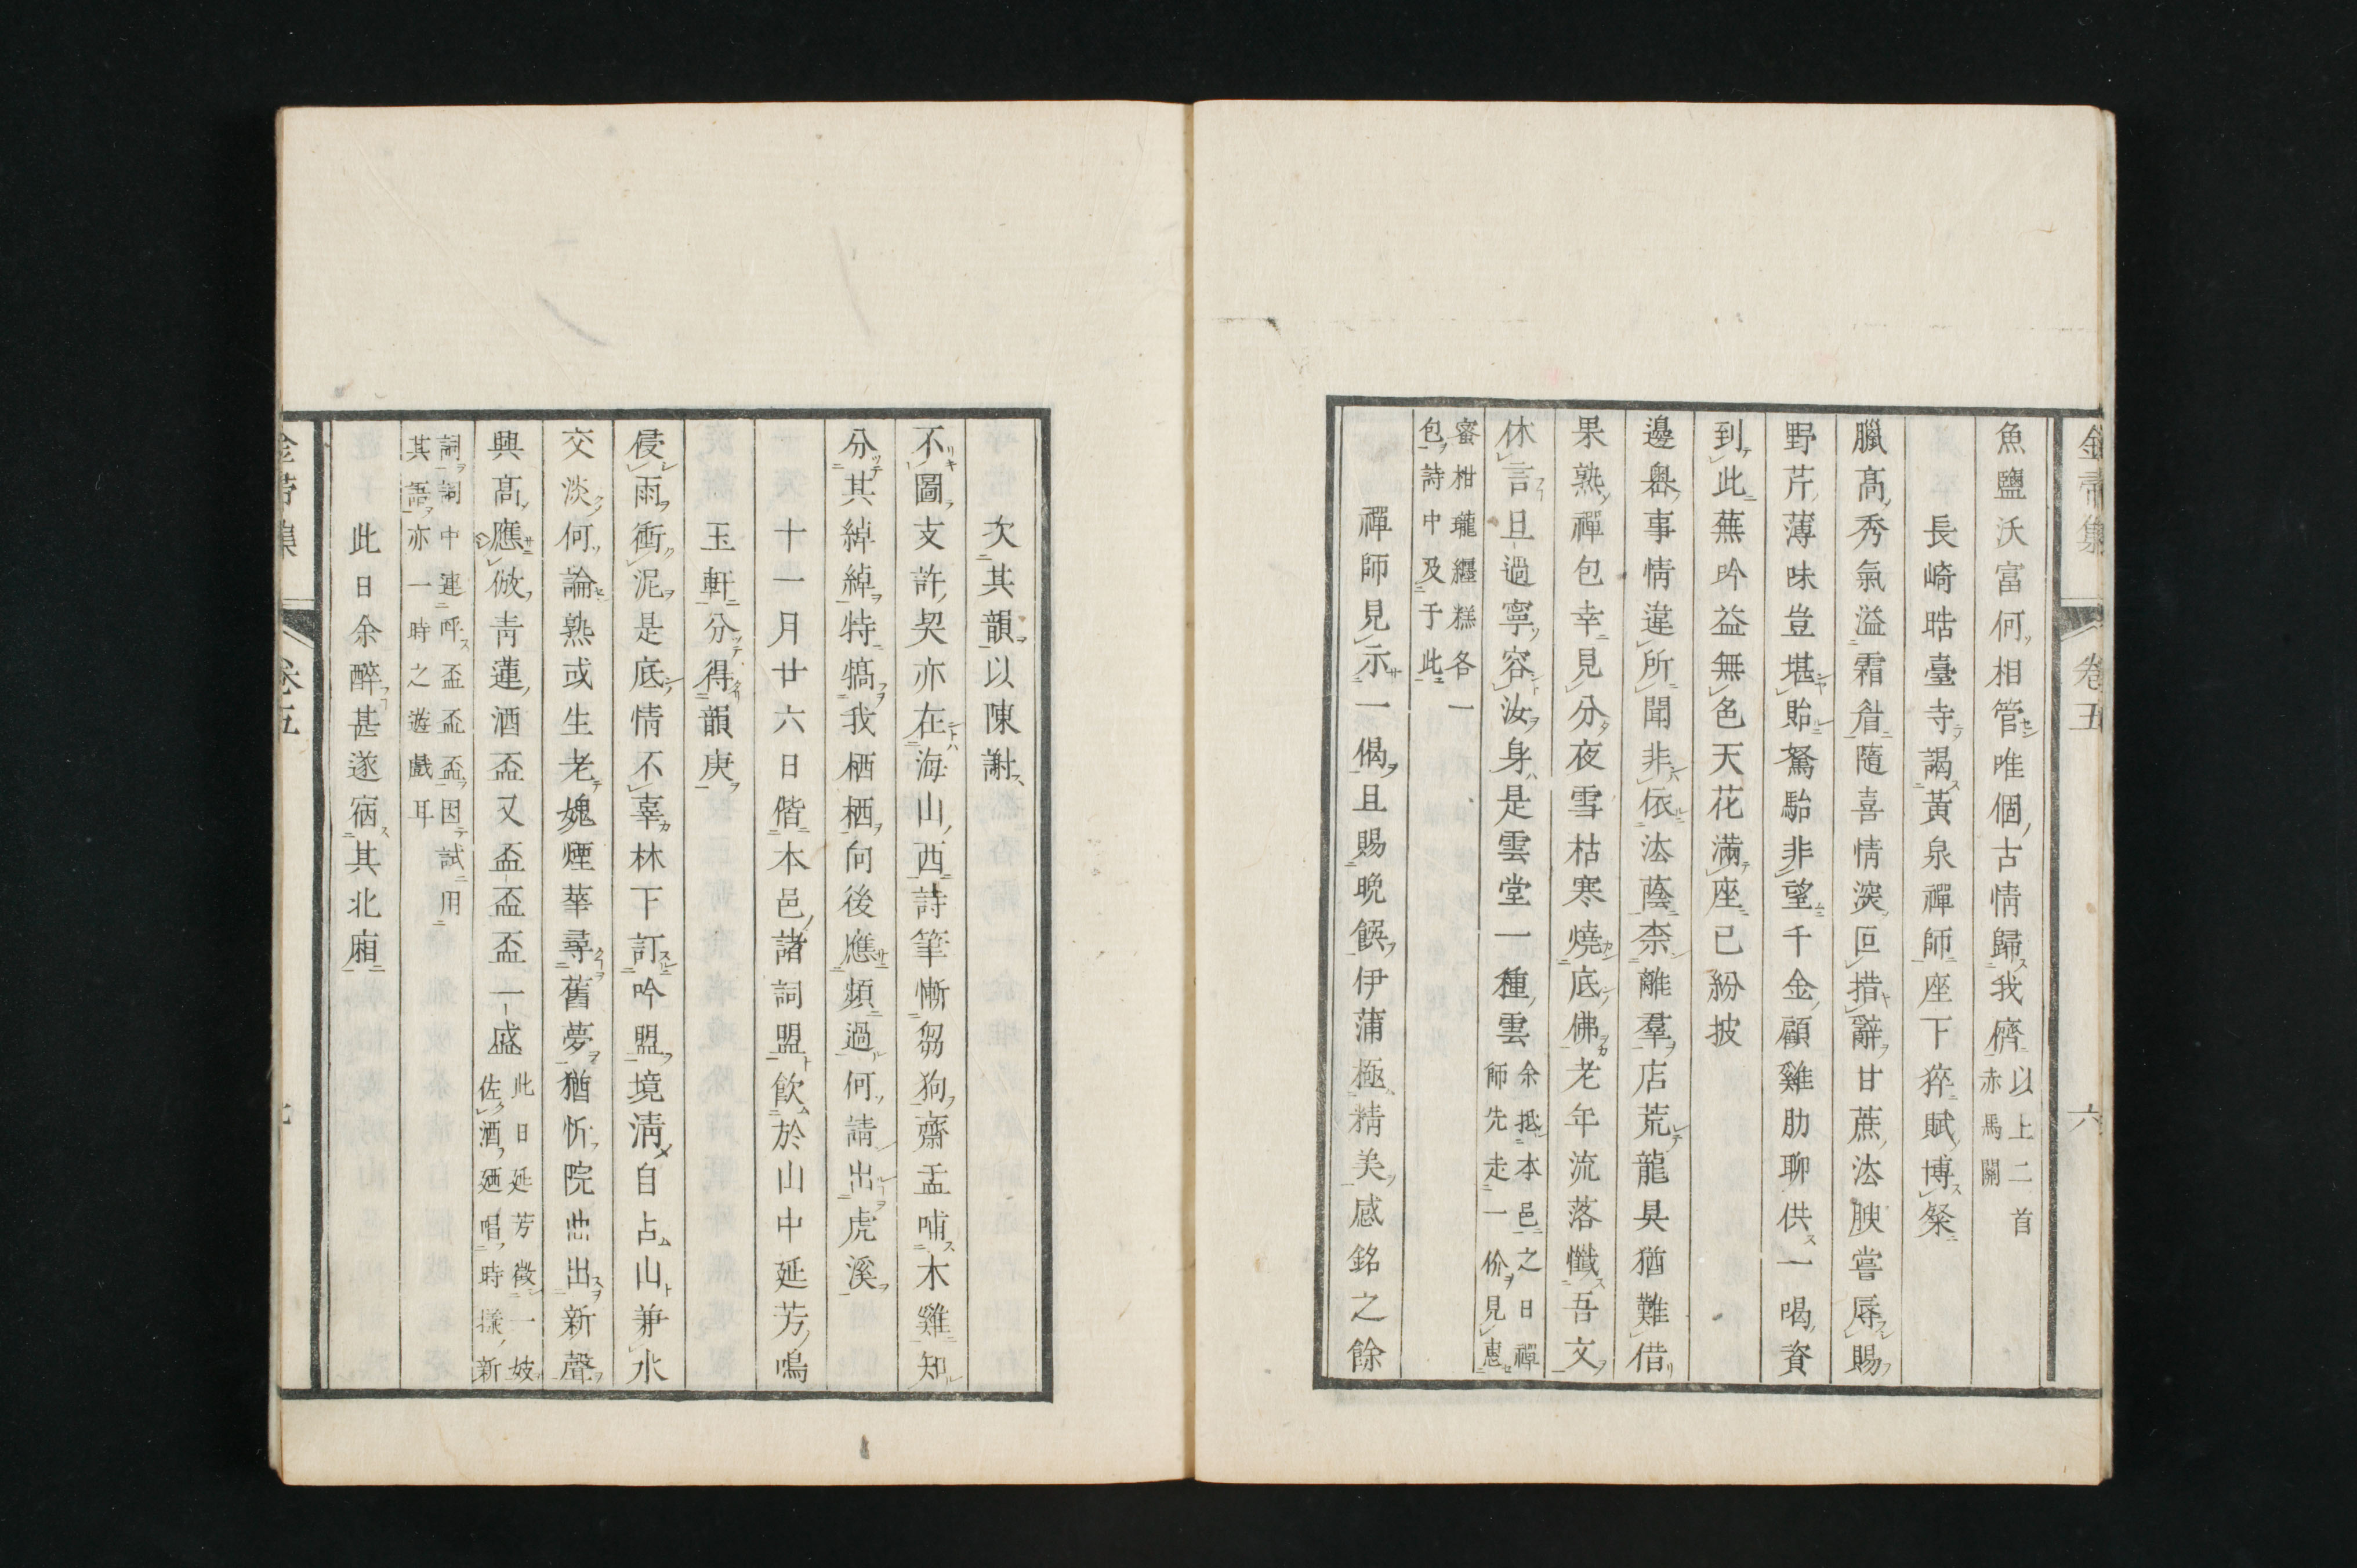 魚鹽沃富何相管唯個古情歸我儕 以上二首赤馬關
長崎晧臺寺謁黃泉禪師座下猝賦博粲
臘高秀氣溢霜眉隨喜情深叵措辭甘蔗法腴嘗辱賜
野芹薄味豈堪貽駑駘非望千金顧雞肋聊供一喝資
到此蕪吟益無色天花滿座已紛披
邊奥事情違所聞非依法蔭柰離羣店荒龍具猶難借
果熟禪包幸見分夜雪枯寒燒底佛老年流落懺吾文
休言旦過寧容汝身是雲堂一種雲 余抵本邑之日禪師先走一价見惠
蜜柑瓏纏糕各一包詩中及于此
禪師見示一偈且賜晩饌伊蒲極精美感銘之餘
次其韻以陳謝
不圖支許契亦在海山西詩筆慚芻狗齋盂哺木雞知
分其綽綽特犒我栖栖向後應頻過何請出虎溪
十一月廿六日偕本邑諸詞盟飮於山中延芳鳴
玉軒分得韻庚
侵雨衝泥是底情不辜林下訂吟盟境淸自占山兼水
交淡何論熟或生老媿煙華尋舊夢猶忻院出新聲
興高應倣靑蓮酒盃又盃盃盃一盛 此日延芳徵一妓佐酒廼唱時樣新
詞詞中連呼盃盃盃因試用其語亦一時之遊戲耳
此日余醉甚遂宿其北廂
卷五
六
卷五